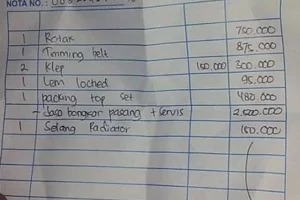 NOTA NO. :
1 Rotak 750.000
1 Timming belt 875.000
2 Klep 150.000 300.000
1 Lem loched 95.000
1 packing top set 480.000
- Jasa bongkar pasang + servis 2.500.000
1 Selang Radiator 150.000